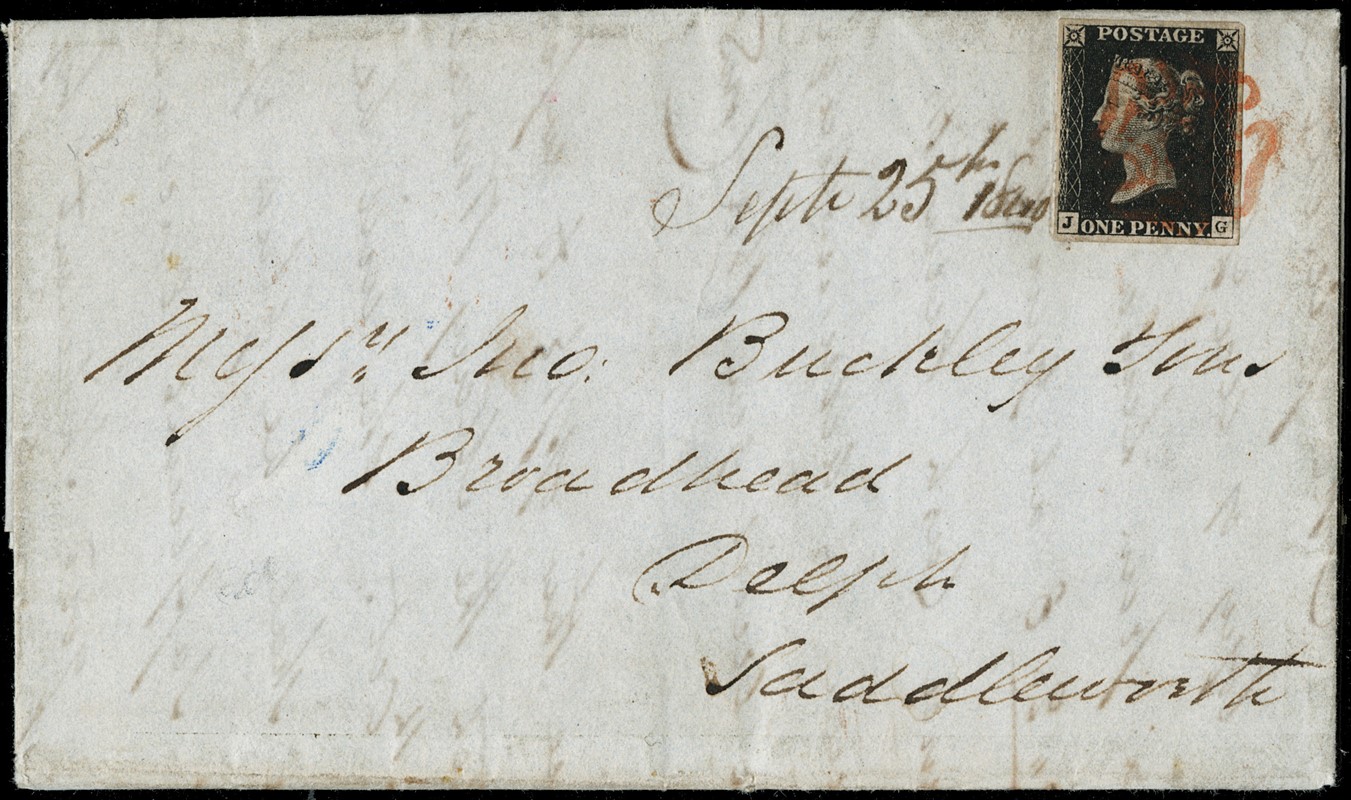 POSTAGE
J ONE PENNY. G
Septr 25th 1840
Messrs. Jno. Buckley Sons
Broadhead
Delph
Saddleworth